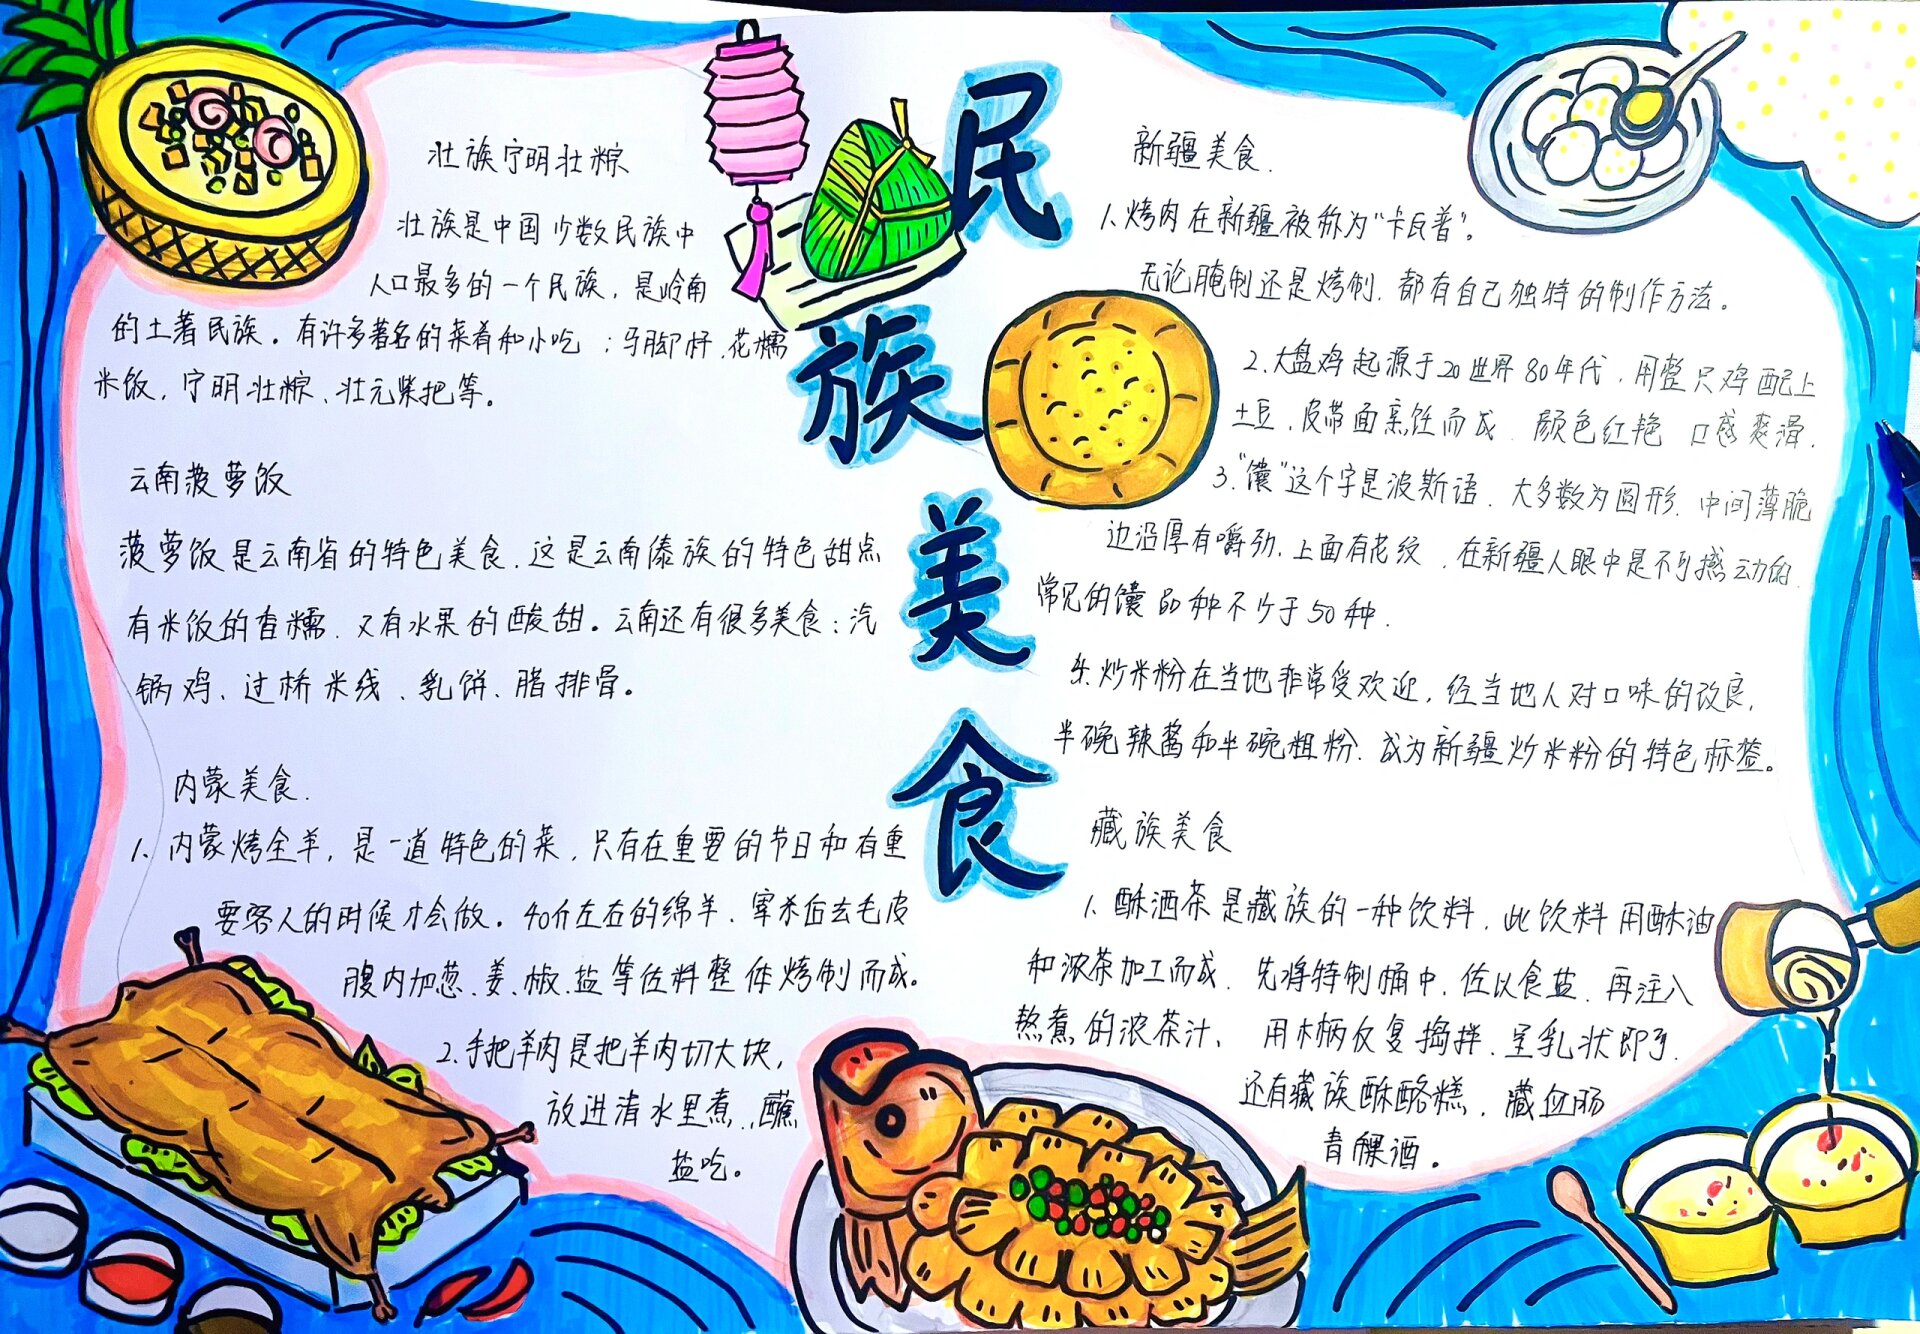 民族美食
壮族宁明壮粽
壮族是中国少数民族中
人口最多的一个民族，是岭南
的土著民族。有许多著名的菜肴和小吃：马脚杆、花糯
米饭，宁明壮粽、壮元柴把等。
云南菠萝饭
菠萝饭是云南省的特色美食.这是云南傣族的特色甜点
有米饭的香糯、又有水果的酸甜。云南还有很多美食：汽
锅鸡、过桥米线、乳饼、腊排骨。
内蒙美食.
1、内蒙烤全羊，是一道特色的菜，只有在重要的节日和有重
要客人的时候才会做。40斤左右的绵羊、宰杀后去毛皮
腹内加葱、姜、椒、盐等佐料整体烤制而成。
2.手把羊肉是把羊肉切大块，
放进清水里煮.,蘸
盐吃。
新疆美食.
1.烤肉在新疆被称为“卡瓦普”。
无论腌制还是烤制.都有自己独特的制作方法。
2.大盘鸡起源于20世界80年代，用整只鸡配上
土豆、皮带面烹饪而成.颜色红艳 口感爽滑.
3.“馕”这个字是波斯语.大多数为圆形.中间薄脆
边沿厚有嚼劲.上面有花纹，在新疆人眼中是不可撼动的.
常见的馕品种不少于50种.
4.炒米粉在当地非常受欢迎，经当地人对口味的改良，
半碗辣酱和半碗粗粉.成为新疆炒米粉的特色标签。
藏族美食
1、酥洒茶是藏族的一种饮料，此饮料用酥油
和浓茶加工而成.先将特制桶中，佐以食盐.再注入
熬煮的浓茶汁、用木柄反复捣拌.呈乳状即可.
还有藏族酥酪糕，藏血肠
青稞酒。